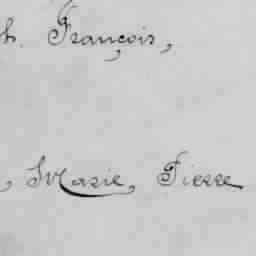 h. François,
, Marie, Pierre